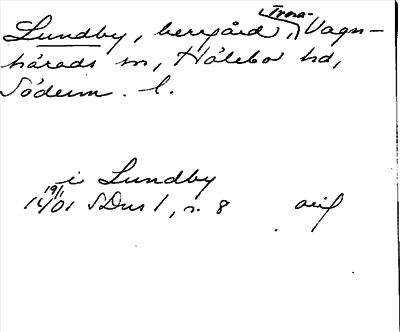 Lundby, herrgård, Trosa-Vagn-
härads sn, Hölebo hd,
Söderm. l.
i Lundby
19/1 1401 SDns 1, s. 8 avif